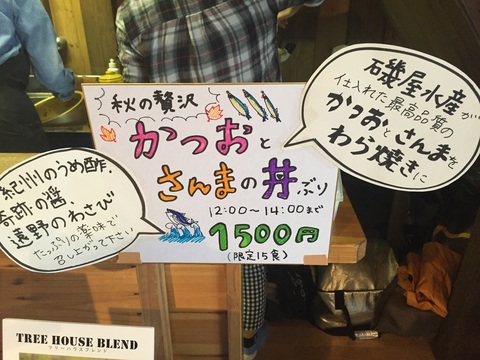 秋の贅沢
かつおと
さんまの丼ぶり
12:00～14:00まで
1500円
(限定15食)
磯屋水産が
仕入れた最高品質の
かつおとさんまを
わら焼きに
紀州のうめ酢、
奇跡の醤、
遠野のわさび
たっぷりの薬味で
召し上がって下さい
TREE HOUSE BLEND
ツリーハウスブレンド